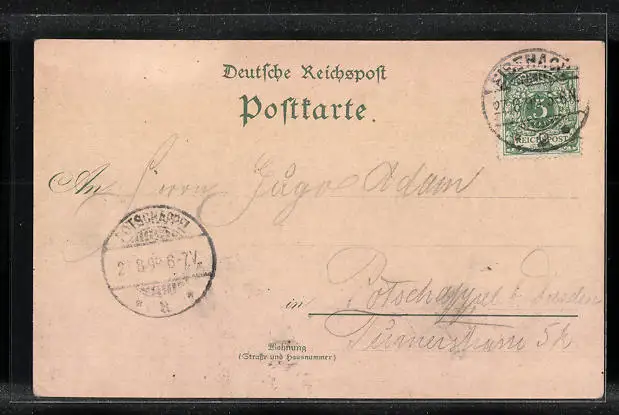 Deutsche Reichspost
Postkarte.
EISENACH
5
REICHSPOST
An Herrn Hugo Adam
POTSCHAPPEL
6-7V.
in Potschappel b. Dresden
Wohnung
(Straße und Hausnummer)